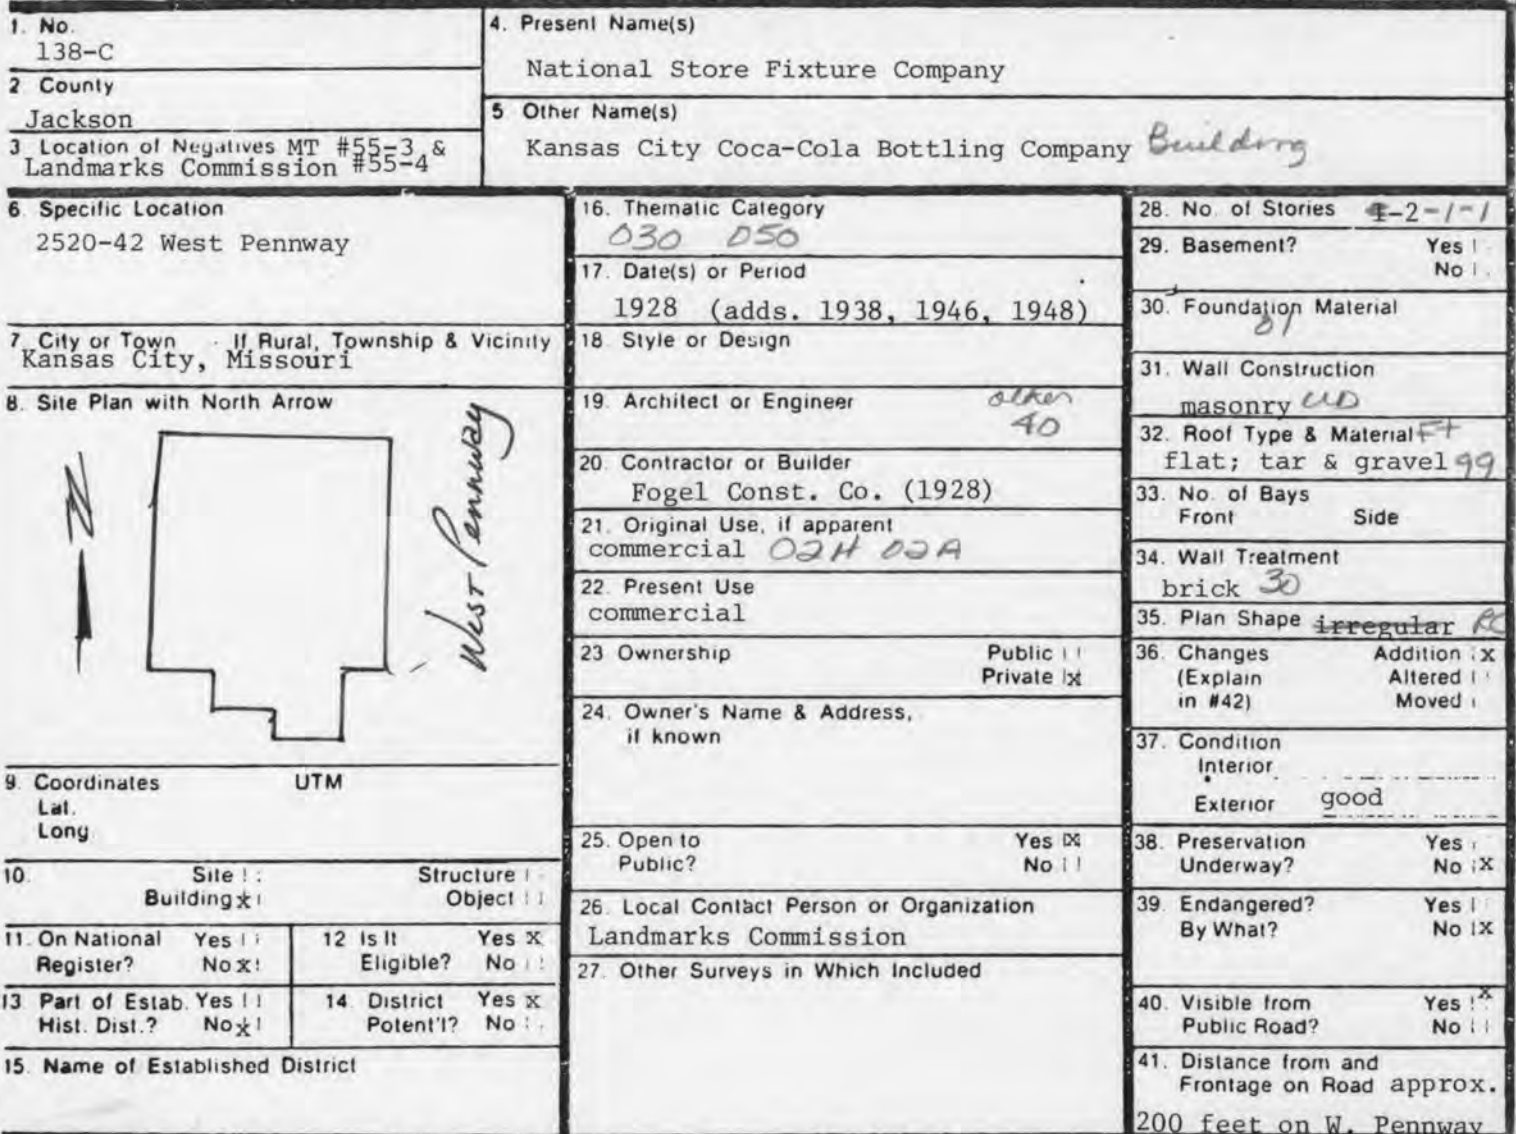 1. No.
138-C
2 County
Jackson
3 Location of Negatives MT #55-3 &
Landmarks Commission #55-4
4. Present Name(s)
National Store Fixture Company
5 Other Name(s)
Kansas City Coca-Cola Bottling Company Building
6. Specific Location
2520-42 West Pennway
7. City or Town If Rural, Township & Vicinity
Kansas City, Missouri
8. Site Plan with North Arrow
N
West Pennway
9. Coordinates UTM
Lat.
Long.
10. Site Structure
Building x Object
11. On National Yes
Register? No x
12 Is It Yes X
Eligible? No
13 Part of Estab. Yes
Hist. Dist.? No x
14. District Yes X
Potent'l? No
15. Name of Established District
16. Thematic Category
030 050
17. Date(s) or Period
1928 (adds. 1938, 1946, 1948)
18. Style or Design
19. Architect or Engineer other
40
20. Contractor or Builder
Fogel Const. Co. (1928)
21. Original Use, if apparent
commercial 02H 02A
22. Present Use
commercial
23 Ownership Public
Private x
24. Owner's Name & Address,
if known
25. Open to Yes X
Public? No
26. Local Contact Person or Organization
Landmarks Commission
27. Other Surveys in Which Included
28. No. of Stories -2-1-1
29. Basement? Yes
No
30. Foundation Material
01
31. Wall Construction
masonry UD
32. Roof Type & Material Ft
flat; tar & gravel 99
33. No. of Bays
Front Side
34. Wall Treatment
brick 30
35. Plan Shape irregular RC
36. Changes Addition X
(Explain Altered
in #42) Moved
37. Condition
Interior
Exterior good
38. Preservation Yes
Underway? No X
39. Endangered? Yes
By What? No X
40. Visible from Yes X
Public Road? No
41. Distance from and
Frontage on Road approx.
200 feet on W. Pennway